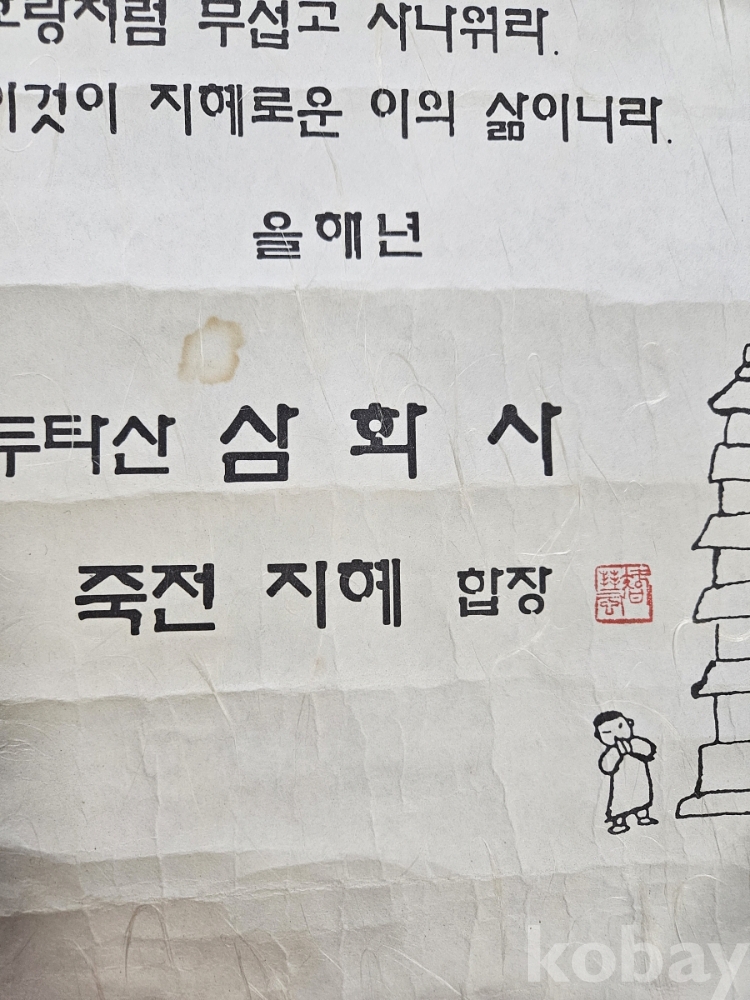 호랑처럼 무섭고 사나워라.
이것이 지혜로운 이의 삶이니라.
을해년
두타산 삼화사
죽전 지혜 합장
kobay